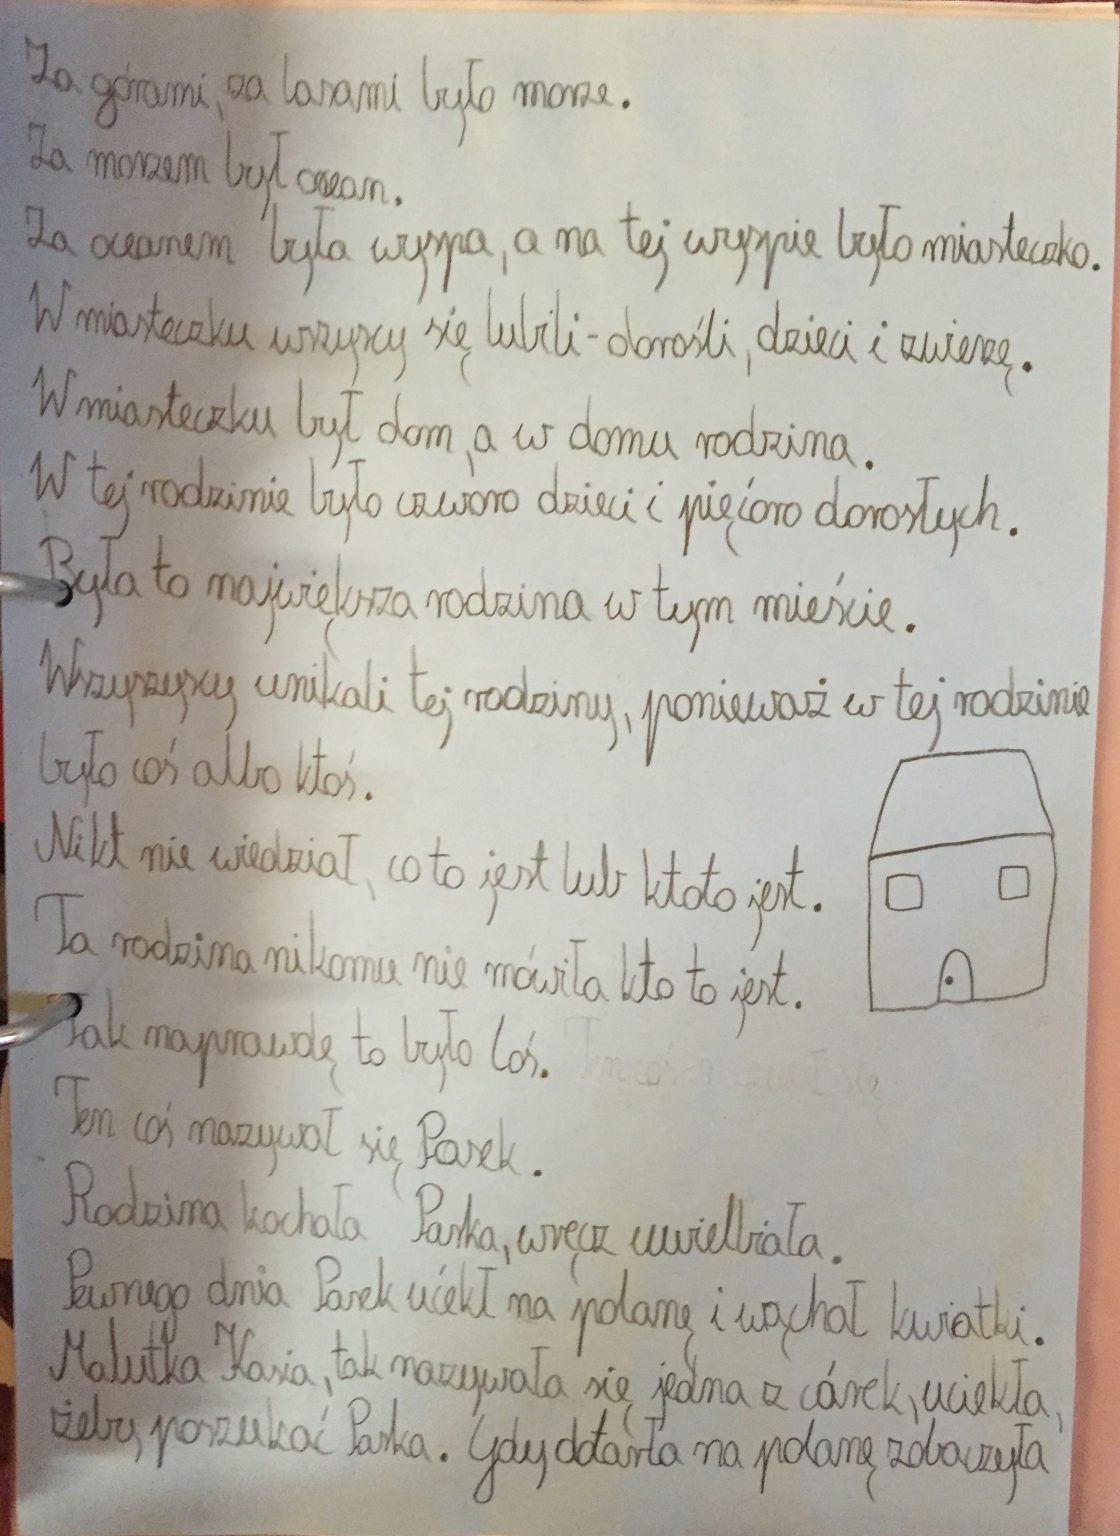 Za górami, za lasami było morze.
Za morzem był ocean.
Za oceanem była wyspa, a na tej wyspie było miasteczko.
W miasteczku wszyscy się lubili - dorośli, dzieci i zwierzę.
W miasteczku był dom, a w domu rodzina.
W tej rodzinie było czworo dzieci i pięćoro dorosłych.
Była to największa rodzina w tym mieście.
Wszyszyscy unikali tej rodziny, ponieważ w tej rodzinie
było coś albo ktoś.
Nikt nie wiedział, co to jest lub kto to jest.
Ta rodzina nikomu nie mówiła kto to jest.
Tak naprawdę to było Coś.
Ten coś nazywał się Parek.
Rodzina kochała Parka, wręcz uwielbiała.
Pewnego dnia Parek ućekł na polanę i wąchał kwiatki.
Malutka Kasia, tak nazywała się jedna z córek, uciekła,
żeby poszukać Parka. Gdy dotarła na polanę zobaczyła